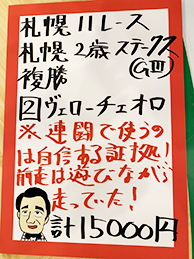 札幌11レース
札幌2歳ステークス
(GⅢ)
複勝
②ヴェローチェオロ
※連闘で使うの
は自信する証拠!
前走は遊びながら
走っていた!
計15000円